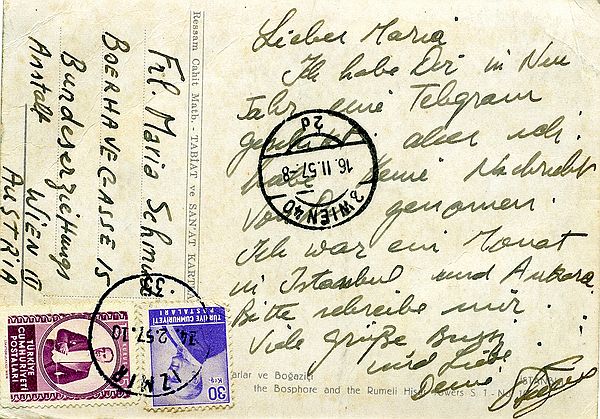 Lieber Maria
Ich habe Dir in Neu
Jahr eine Telegram
geschickt aber ich
habe keine Nachricht
von genomen.
Ich war ein Monat
in Istanbul und Ankara
Bitte schreibe mir.
Viele Grüße Bussy
und Liebe
Deine
Frl. Maria Schmu
BOERHAVEGASSE 15
Bundeserziehungs
Anstalt
WIEN III
AUSTRIA
Ressam Cahit Matb. - TABİAT ve SAN'AT KARTLA
2 WIEN 40
16. II. 57. - 8
2d
İZMİR
14 2 57. 10
33
TÜRKİYE
CUMHURİYETİ
POSTALARI
TÜRKİYE CUMHURİYETİ
POSTALARI
30
Krş
arlar ve Boğaziçi
the Bosphore and the Rumeli His Towers S. 1 - No.
İSTANBUL